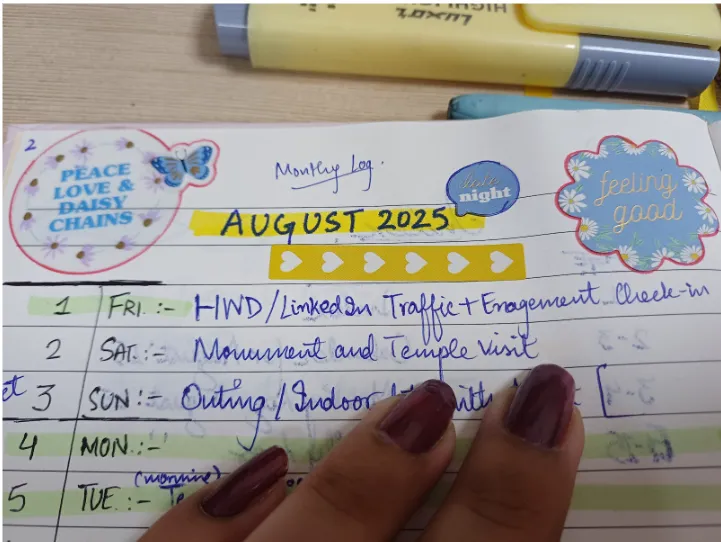 HIGHLIGHTER
LUXOR
2
PEACE
LOVE &
DAISY
CHAINS
Monthly Log.
night
feeling
good
AUGUST 2025
1 FRI. :- HWD/LinkedIn Traffic + Enagement Check-in
2 SAT. :- Monument and Temple Visit
3 SUN :- Outing / Indoor
4 MON. :-
5 TUE. :-